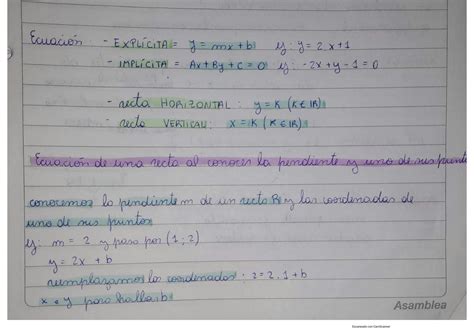 Ecuación: - EXPLÍCITA = y = mx + b ej: y = 2x+1
- IMPLÍCITA = Ax+By+C=0 ej: -2x+y-1=0
- recta HORIZONTAL: y = K (K ∈ IR)
- recta VERTICAL: x = K (K ∈ IR)
Ecuación de una recta al conocer la pendiente y uno de sus
conocemos la pendiente m de un recta R y las coordenadas de
uno de sus puntos
ej: m = 2 y pasa por (1;2)
y = 2x + b
reemplazamos las coordenadas: 2 = 2.1 + b
x e y para hallar b
Asamblea
Escaneado con CamScanner